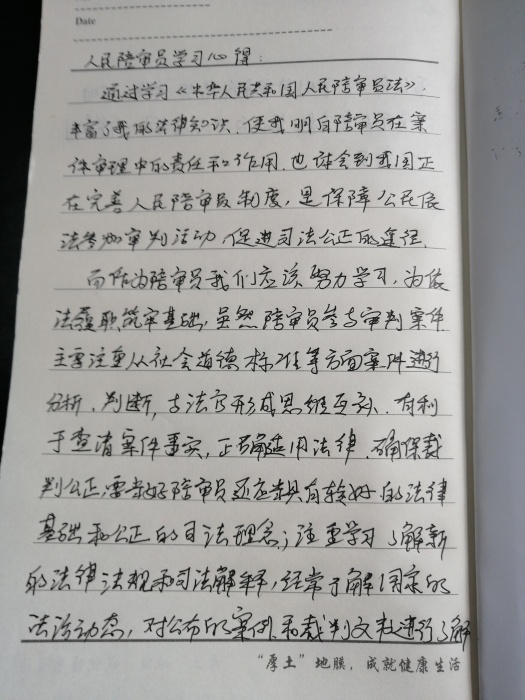 Date
人民陪审员学习心得：
通过学习《中华人民共和国人民陪审员法》，
丰富了我的法律知识，使我明白陪审员在案
件审理中的责任和作用，也体会到我国正
在完善人民陪审员制度，是保障公民依
法参加审判活动，促进司法公正的途径。
而作为陪审员我们应该努力学习，为依
法履职筑牢基础，虽然陪审员参与审判案件
主要注重从社会道德标准等方面案件进行
分析、判断，与法官形成思维互补，有利
于查清案件事实，正确适用法律，确保裁
判公正，要当好陪审员还应当具有较好的法律
基础和公正的司法理念；注重学习了解新
的法律法规和司法解释，经常了解国家的
法治动态，对公布的案例和裁判文书进行了解
“厚土”地膜，成就健康生活